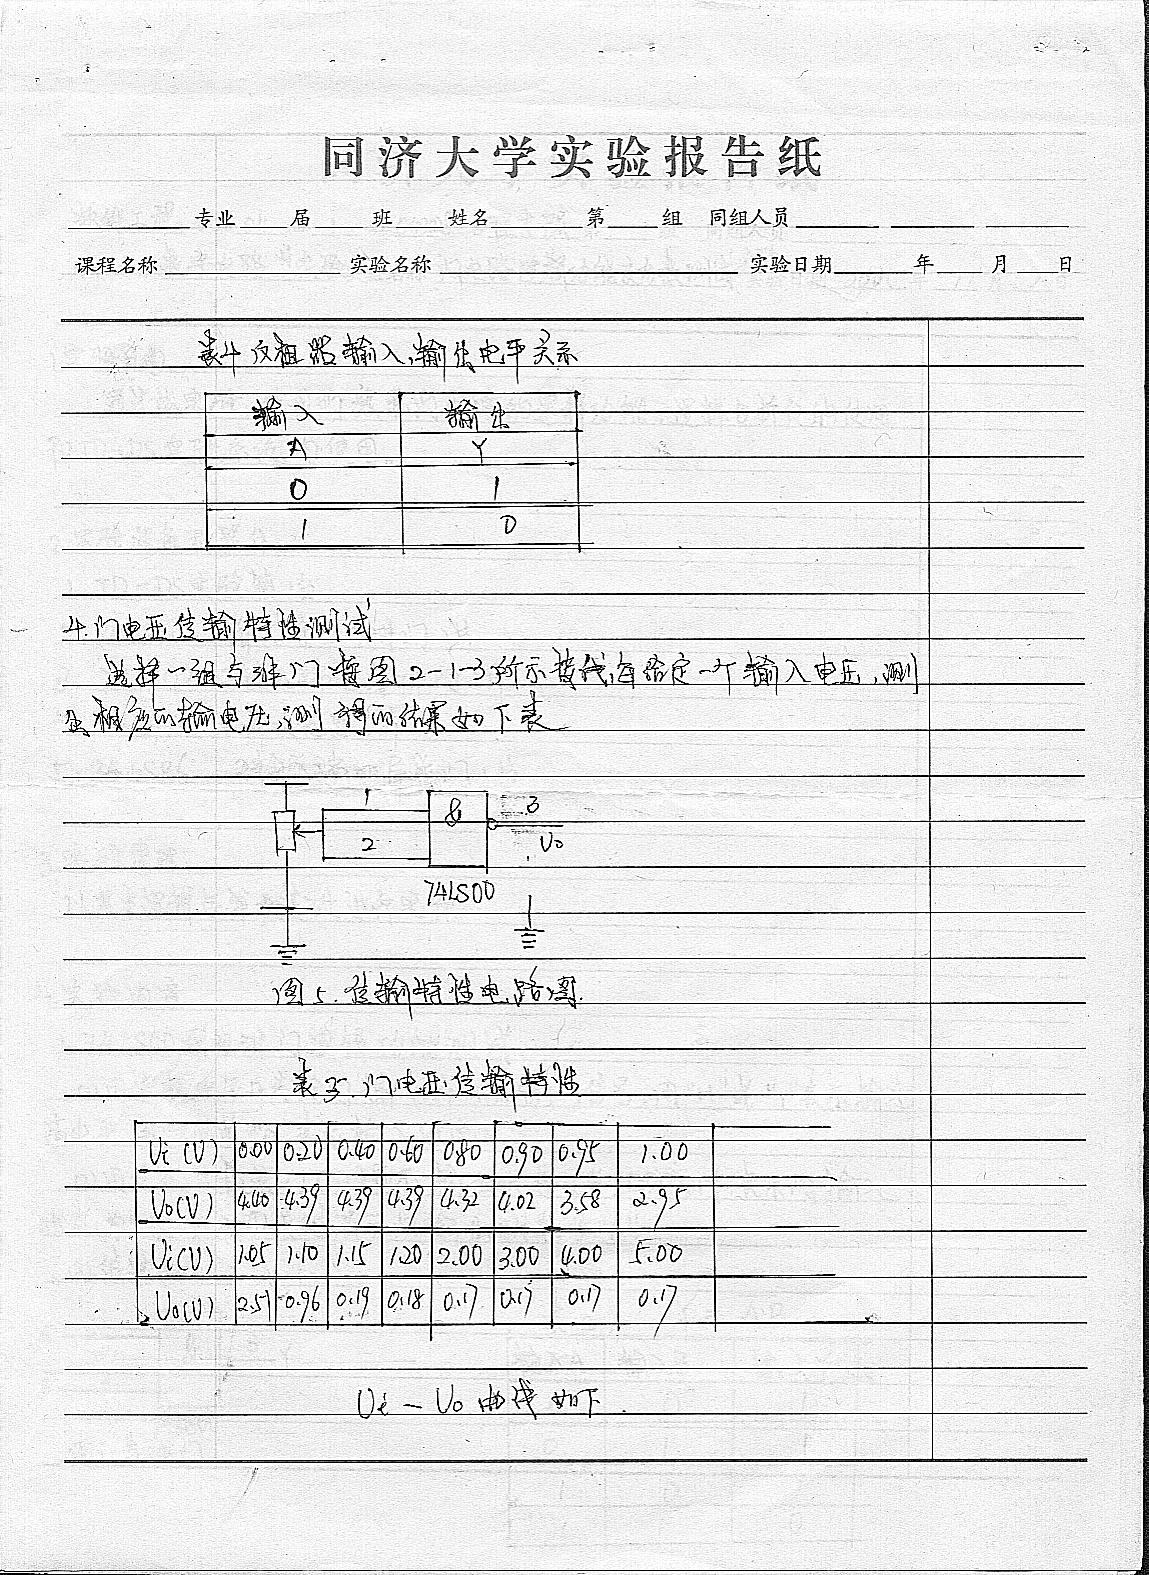 同济大学实验报告纸
专业 届 班 姓名 第 组 同组人员
课程名称 实验名称 实验日期 年 月 日
表4 反相器输入、输出电平关系
输入 输出
A Y
0 1
1 0
4.门电压传输特性测试
选择一组与非门接图2-1-3所示接线,每给定一个输入电压,测
出相应的输电压,测得的结果如下表
1 & 3
2 Uo
74LS00
图5.传输特性电路图.
表5.门电压传输特性
Ui(V) 0.00 0.20 0.40 0.60 0.80 0.90 0.95 1.00
Uo(V) 4.40 4.39 4.39 4.39 4.32 4.02 3.58 2.95
Ui(V) 1.05 1.10 1.15 1.20 2.00 3.00 4.00 5.00
Uo(V) 2.51 0.96 0.19 0.18 0.17 0.17 0.17 0.17
Ui-Uo曲线如下.